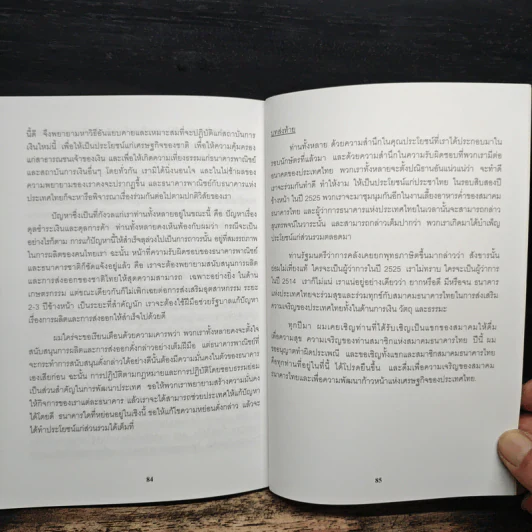 นี้ดี จึงพยายามหาวิธีอันแยบคายและเหมาะสมที่จะปฏิบัติแก่สถาบันการ
เงินใหม่นี้ เพื่อให้เป็นประโยชน์แก่เศรษฐกิจของชาติ เพื่อให้ความคุ้มครอง
แก่สาธารณชนเจ้าของเงิน และเพื่อให้เกิดความเที่ยงธรรมแก่ธนาคารพาณิชย์
และสถาบันการเงินอื่นๆ โดยทั่วกัน เรามิได้นิ่งนอนใจ และในไม่ช้าผลของ
ความพยายามของเราคงจะปรากฏขึ้น และธนาคารพาณิชย์กับธนาคารแห่ง
ประเทศไทยก็จะหารือพิจารณาเรื่องร่วมกันต่อไปตามปกติวิสัยของเรา
ปัญหาซึ่งเป็นที่กังวลแก่เราท่านทั้งหลายอยู่ในขณะนี้ คือ ปัญหาเรื่อง
ดุลชำระเงินและดุลการค้า ท่านทั้งหลายคงเห็นพ้องกับผมว่า กรณีจะเป็น
อย่างไรก็ตาม การแก้ปัญหานี้ให้สำเร็จลุล่วงไปเป็นการถาวรนั้น อยู่ที่สมรรถภาพ
ในการผลิตของคนไทยเรา ฉะนั้น หน้าที่ความรับผิดชอบของธนาคารพาณิชย์
และธนาคารชาติก็ชัดแจ้งอยู่แล้ว คือ เราจะต้องพยายามสนับสนุนการผลิต
และการส่งออกของชาติไทยให้สุดความสามารถ เฉพาะอย่างยิ่ง ในด้าน
เกษตรกรรม แต่ขณะเดียวกันก็ไม่พึงเฉยต่อการส่งเสริมอุตสาหกรรม ระยะ
2-3 ปีข้างหน้า เป็นระยะที่สำคัญนัก เราจะต้องใช้ฝีมือช่วยรัฐบาลแก้ปัญหา
เรื่องการผลิตและการส่งออกให้สำเร็จไปด้วยดี
ผมใคร่จะขอเรียนเตือนด้วยความเคารพว่า พวกเราทั้งหลายคงจะตั้งใจ
สนับสนุนการผลิตและการส่งออกดังกล่าวอย่างเต็มฝีมือ แต่ธนาคารพาณิชย์ที่
จะกระทำการสนับสนุนดังกล่าวได้อย่างดีนั้นต้องมีความมั่นคงในตัวของธนาคาร
เองเสียก่อน ฉะนั้น การปฏิบัติตามกฎหมายและการปฏิบัติโดยชอบธรรมย่อม
เป็นส่วนสำคัญในการพัฒนาประเทศ ขอให้พวกเราพยายามสร้างความมั่นคง
ให้กิจการของเราแต่ละธนาคาร แล้วเราจะได้สามารถช่วยประเทศให้แก้ปัญหา
ได้โดยดี ธนาคารใดที่หย่อนอยู่ในเชิงนี้ ขอให้แก้ไขความหย่อนดังกล่าว แล้วจะ
ได้ทำประโยชน์แก่ส่วนรวมได้เต็มที่
84
บทส่งท้าย
ท่านทั้งหลาย ด้วยความสำนึกในคุณประโยชน์ที่เราได้ประกอบมาใน
รอบนักษัตรที่แล้วมา และด้วยความสำนึกในความรับผิดชอบที่พวกเรามีต่อ
อนาคตของประเทศไทย พวกเราทั้งหลายจะตั้งปณิธานอันแน่วแน่ว่า จะทำดี
เราจะร่วมกันทำดี ทำให้งาม ให้เป็นประโยชน์แก่ประชาไทย ในรอบสิบสองปี
ข้างหน้า ในปี 2525 พวกเราจะมาชุมนุมกันอีกในงานเลี้ยงอาหารค่ำของสมาคม
ธนาคารไทย และผู้ว่าการธนาคารแห่งประเทศไทยในเวลานั้นจะสามารถกล่าว
สุนทรพจน์ในวาระนั้น และสามารถกล่าวเต็มปากว่า พวกเราเกิดมาได้บำเพ็ญ
ประโยชน์แก่ส่วนรวมตลอดมา
ท่านรัฐมนตรีว่าการคลังเคยยกพุทธภาษิตขึ้นมากล่าวว่า สังขารนั้น
ย่อมไม่เที่ยงแท้ ใครจะเป็นผู้ว่าการในปี 2525 เราไม่ทราบ ใครจะเป็นผู้ว่าการ
ในปี 2514 เราก็ไม่แน่ เราแน่อยู่อย่างเดียวว่า ยากหรือดี มีหรือจน ธนาคาร
แห่งประเทศไทยจะร่วมสุขและร่วมทุกข์กับสมาคมธนาคารไทยในการส่งเสริม
ความเจริญของประเทศไทยทั้งในด้านการเงิน วัตถุ และธรรมะ
ทุกปีมา ผมเคยเชิญท่านที่ได้รับเชิญเป็นแขกของสมาคมให้ดื่ม
เพื่อความสุข ความเจริญของท่านสมาชิกแห่งสมาคมธนาคารไทย ปีนี้ ผม
ขออนุญาตทำผิดประเพณี และขอเชิญทั้งแขกและสมาชิกสมาคมธนาคารไทย
คือทุกท่านที่อยู่ในที่นี้ ได้โปรดยืนขึ้น และดื่มเพื่อความเจริญของสมาคม
ธนาคารไทยและเพื่อความพัฒนาก้าวหน้าแห่งเศรษฐกิจของประเทศไทย
85